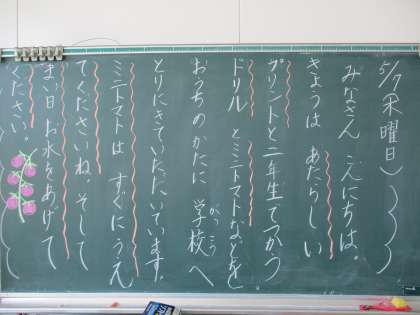 5/7(木曜日)
みなさん こんにちは。
きょうは あたらしい
プリントと二年生でつかう
ドリル とミニトマトなどを
おうちのかたに 学校へ
がっこう
とりにきていただいています。
ミニトマトは すぐにうえ
てくださいね。そして
まい日 お水をあげて
ください。